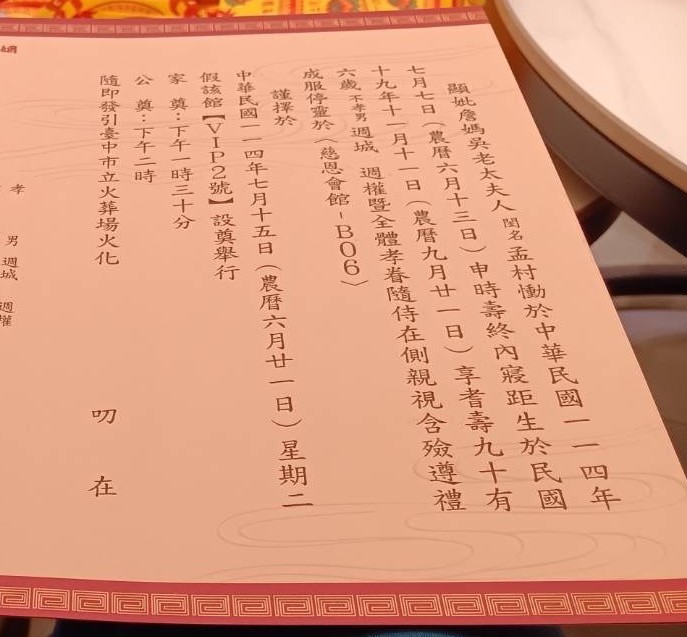 顯妣詹媽吳老太夫人閨名孟村慟於中華民國一一四年
七月七日（農曆六月十三日）申時壽終內寢距生於民國
十九年十一月十一日（農曆九月廿一日）享耆壽九十有
六歲不孝男週城 週權暨全體孝眷隨侍在側親視含殮遵禮
成服停靈於（慈恩會館－B06）
謹擇於
中華民國一一四年七月十五日（農曆六月廿一日）星期二
假該館【VIP2號】設奠舉行
家 奠：下午一時三十分
公 奠：下午二時
隨即發引臺中市立火葬場火化
叨 在
孝 男 週城 週權